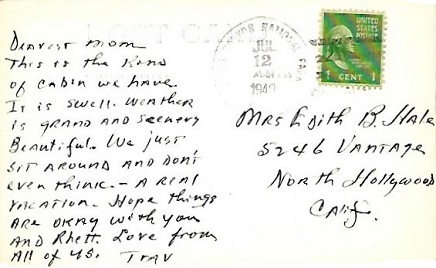 Dearest mom
This is the kind
of cabin we have.
It is swell. Weather
is grand and scenery
Beautiful. We just
sit around and don't
even think. - A real
vacation. Hope things
are okay with you
and Rhett. Love from
All of us. Trav
POST CARD
NATIONAL PARK
JUL
12
UNITED
STATES
POSTAGE
1 CENT 1
Mrs Edith B. Hale
5246 Vantage
North Hollywood
Calif.